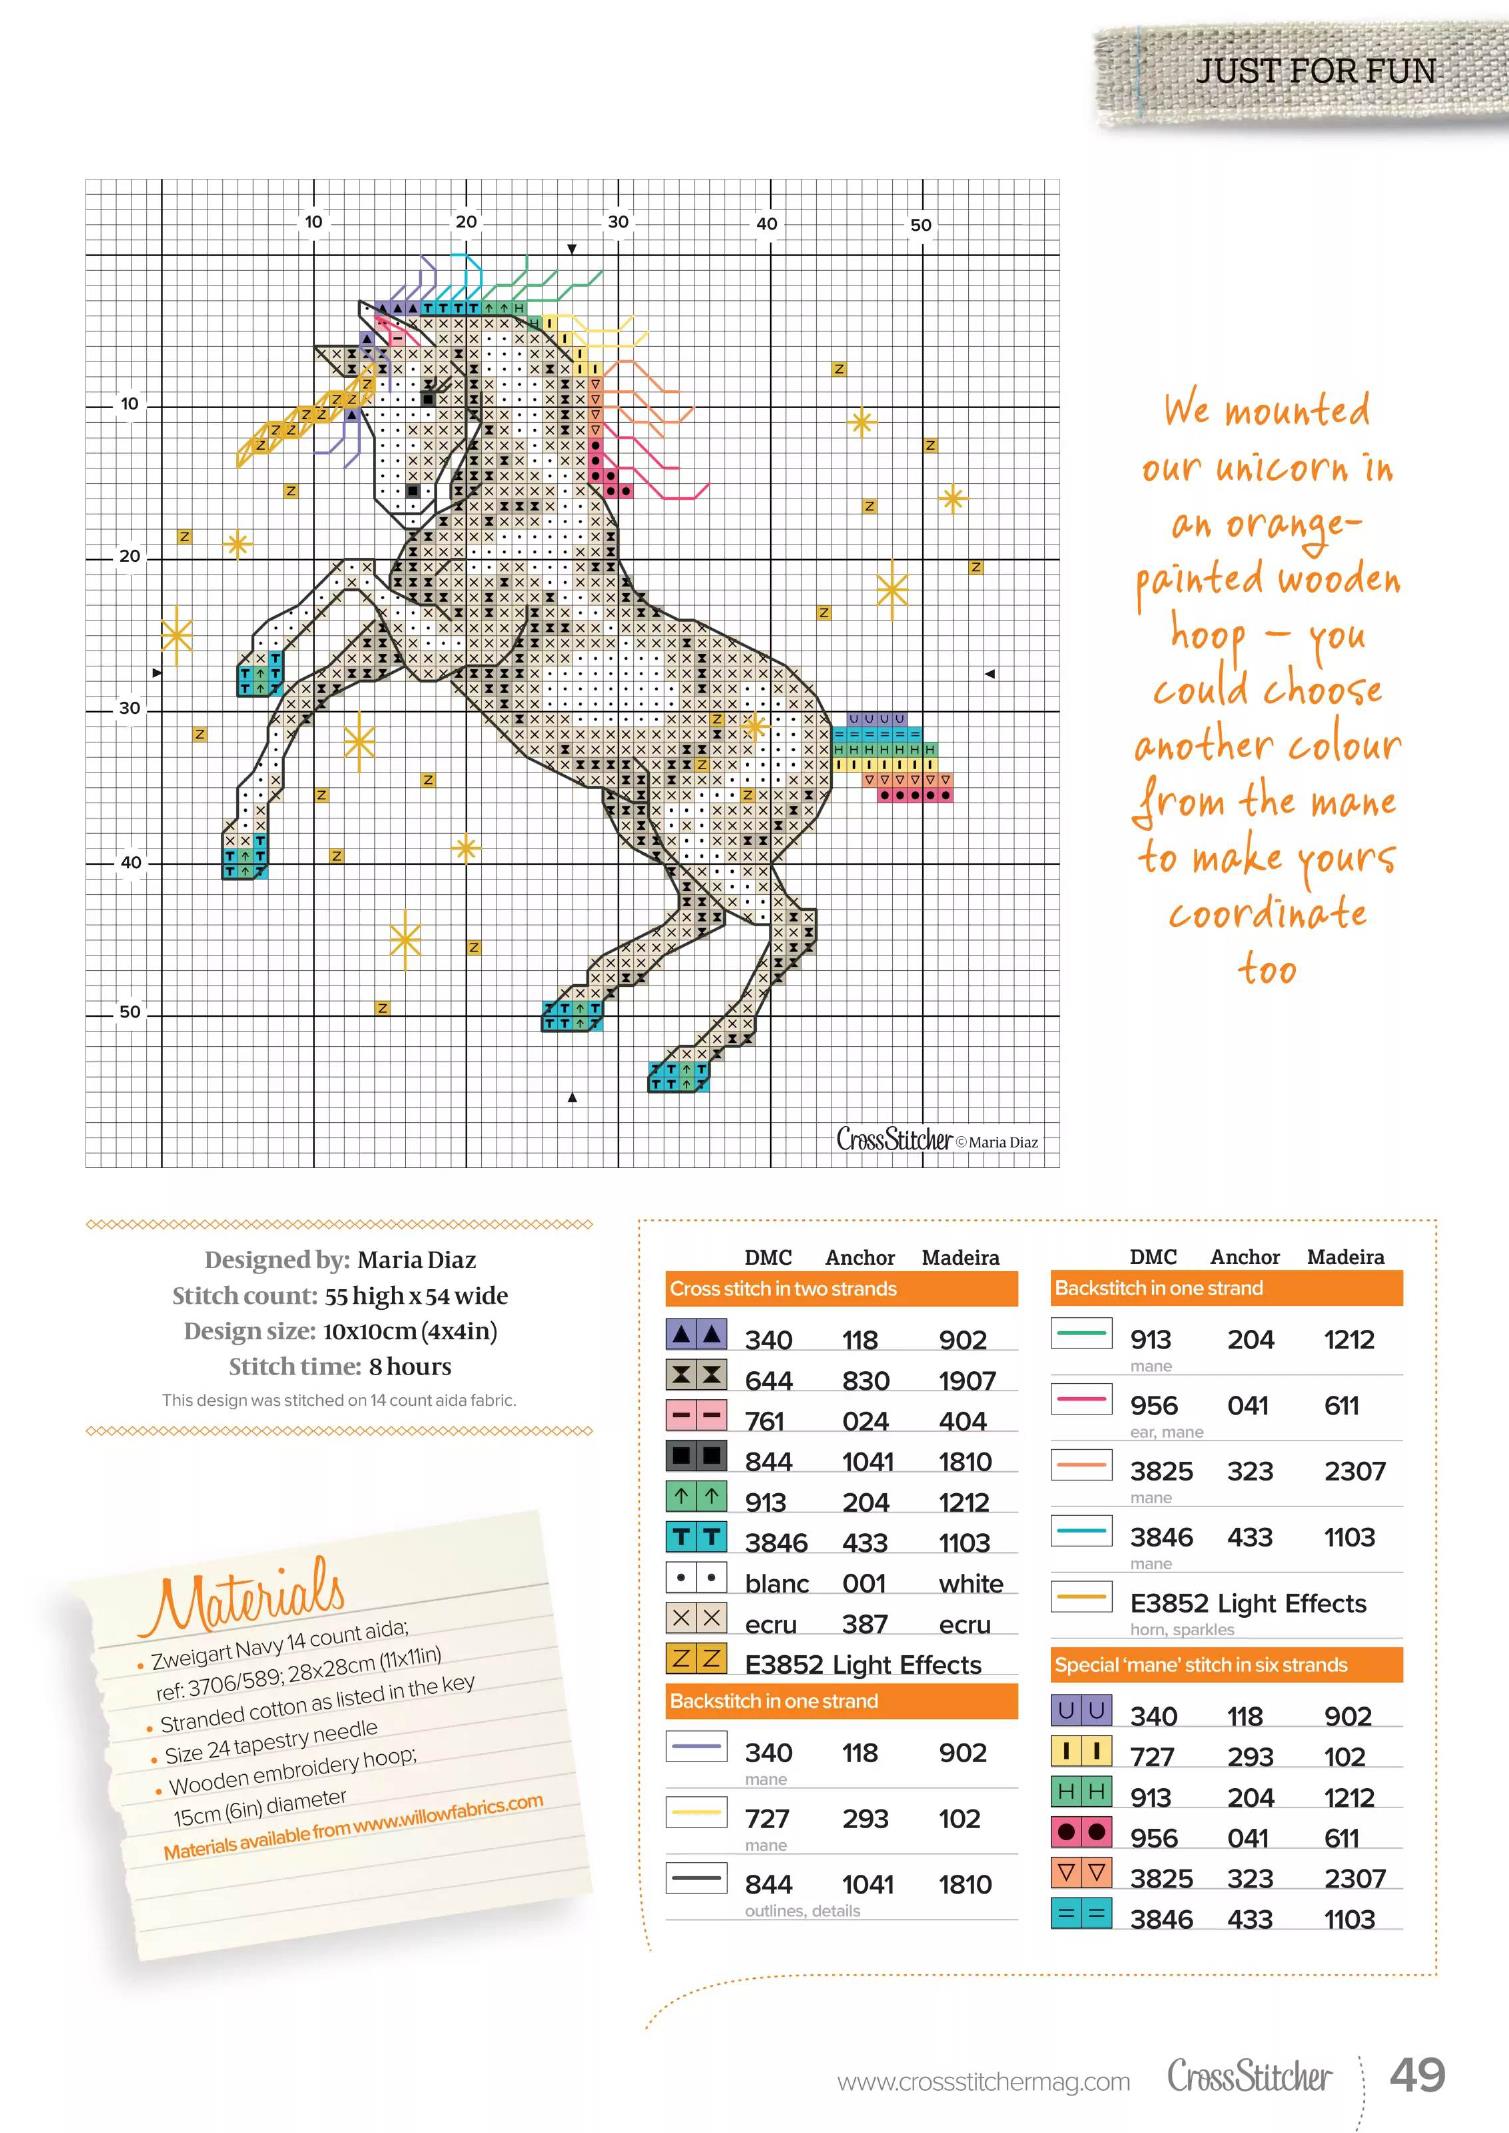 JUST FOR FUN
10 20 30 40 50
10
20
30
40
50
CrossStitcher © Maria Diaz
We mounted
our unicorn in
an orange-
painted wooden
hoop – you
could choose
another colour
from the mane
to make yours
coordinate
too
Designed by: Maria Diaz
Stitch count: 55 high x 54 wide
Design size: 10x10cm (4x4in)
Stitch time: 8 hours
This design was stitched on 14 count aida fabric.
Materials
• Zweigart Navy 14 count aida;
ref: 3706/589; 28x28cm (11x11in)
• Stranded cotton as listed in the key
• Size 24 tapestry needle
• Wooden embroidery hoop;
15cm (6in) diameter
Materials available from www.willowfabrics.com
DMC Anchor Madeira
Cross stitch in two strands
340 118 902
644 830 1907
761 024 404
844 1041 1810
913 204 1212
3846 433 1103
blanc 001 white
ecru 387 ecru
E3852 Light Effects
Backstitch in one strand
340 118 902
mane
727 293 102
mane
844 1041 1810
outlines, details
DMC Anchor Madeira
Backstitch in one strand
913 204 1212
mane
956 041 611
ear, mane
3825 323 2307
mane
3846 433 1103
mane
E3852 Light Effects
horn, sparkles
Special ‘mane’ stitch in six strands
340 118 902
727 293 102
913 204 1212
956 041 611
3825 323 2307
3846 433 1103
www.crossstitchermag.com CrossStitcher 49